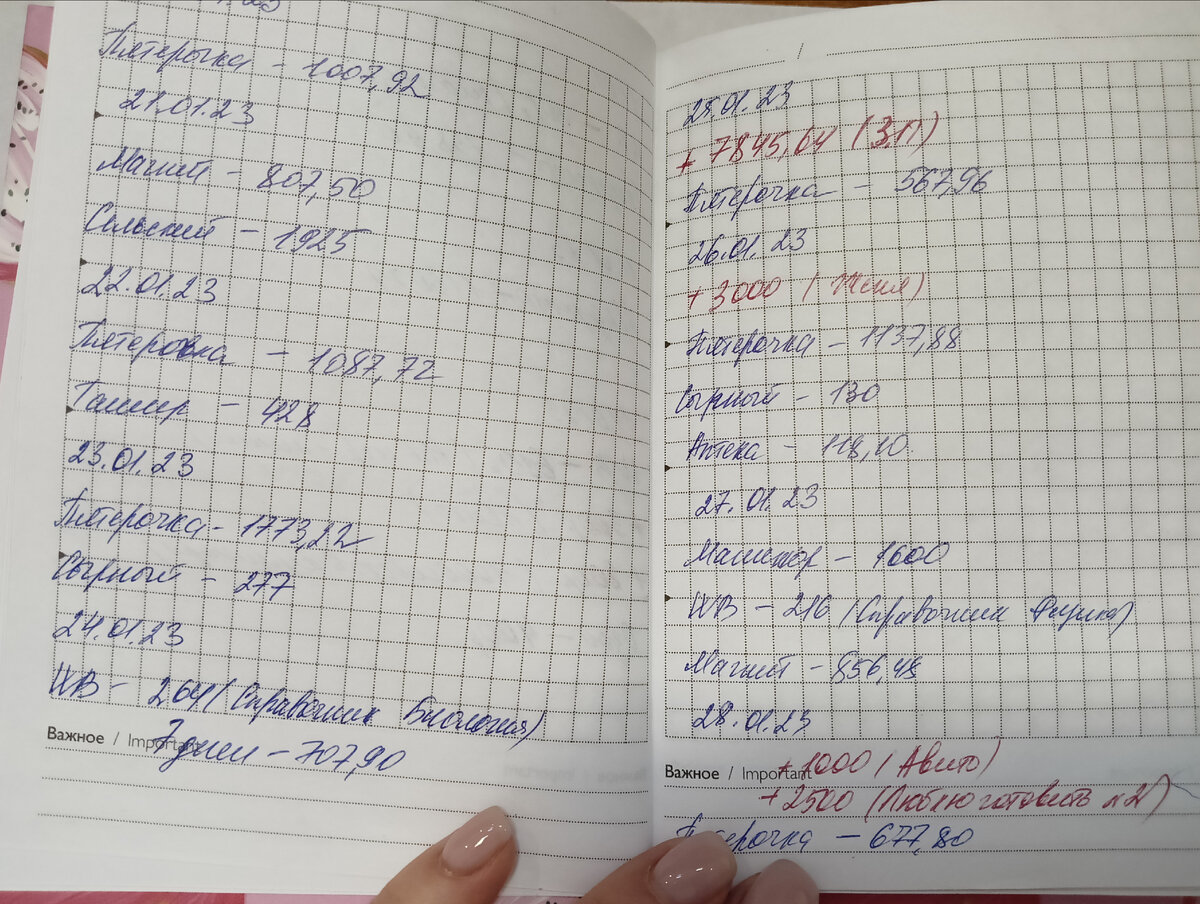 Пятерочка - 1007,92
21.01.23
Магнит - 807,50
Сельский - 1925
22.01.23
Пятеровка - 1087,72
Ташир - 428
23.01.23
Пятерочка - 1773,22
Сырный - 277
24.01.23
WB - 264 (Справочник Биология)
Важное / Important
7 дней - 707,90
25.01.23
+ 7845,64 (З.П)
Пятерочка - 567,96
26.01.23
+ 3000 (Женя)
Пятерочка - 1137,88
Сырный - 130
Аптека - 118,10
27.01.23
Маникюр - 1600
WB - 216 (Справочник Физика)
Магнит - 856,48
28.01.23
Важное / Important
+ 1000 (Авито)
+ 2500 (Люблю готовить №2)
Пятерочка - 677,80